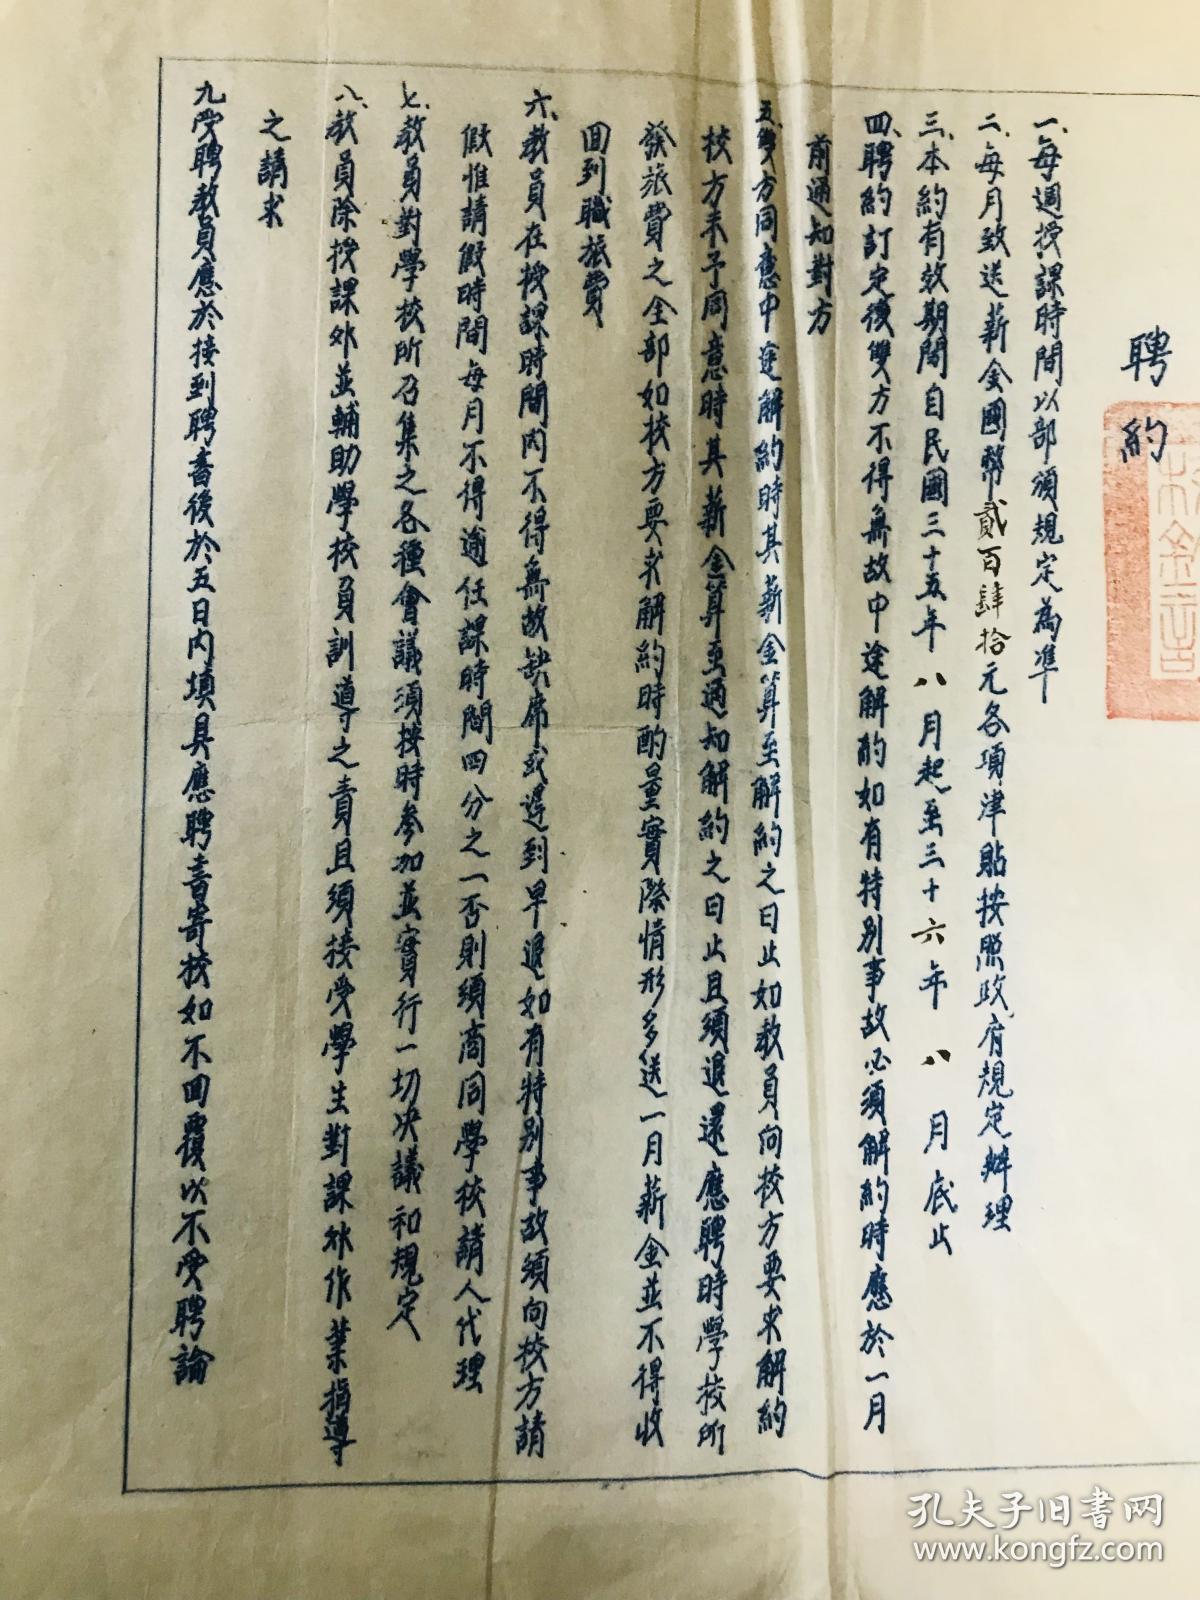 聘約
一、每週授課時間以部頒規定為準
二、每月致送薪金國幣貳百肆拾元各項津貼按照政府規定辦理
三、本約有效期間自民國三十五年八月起至三十六年八月底止
四、聘約訂定後雙方不得無故中途解約如有特別事故必須解約時應於一月
前通知對方
五、雙方同應中途解約時其薪金算至解約之日止如教員向校方要求解約
校方未予同意時其薪金算至通知解約之日止且須退還應聘時學校所
發旅費之全部如校方要求解約時酌量實際情形多送一月薪金並不得收
回到職旅費
六、教員在授課時間內不得無故缺席或遲到早退如有特別事故須向校方請
假惟請假時間每月不得逾任課時間四分之一否則須商同學校請人代理
七、教員對學校所召集之各種會議須按時參加並實行一切决議和規定
八、教員除授課外並輔助學校負訓導之責且須接受學生對課外作業指導
之請求
九、受聘教員應於接到聘書後於五日內填具應聘書寄校如不回覆以不受聘論
孔夫子旧书网
www.kongfz.com